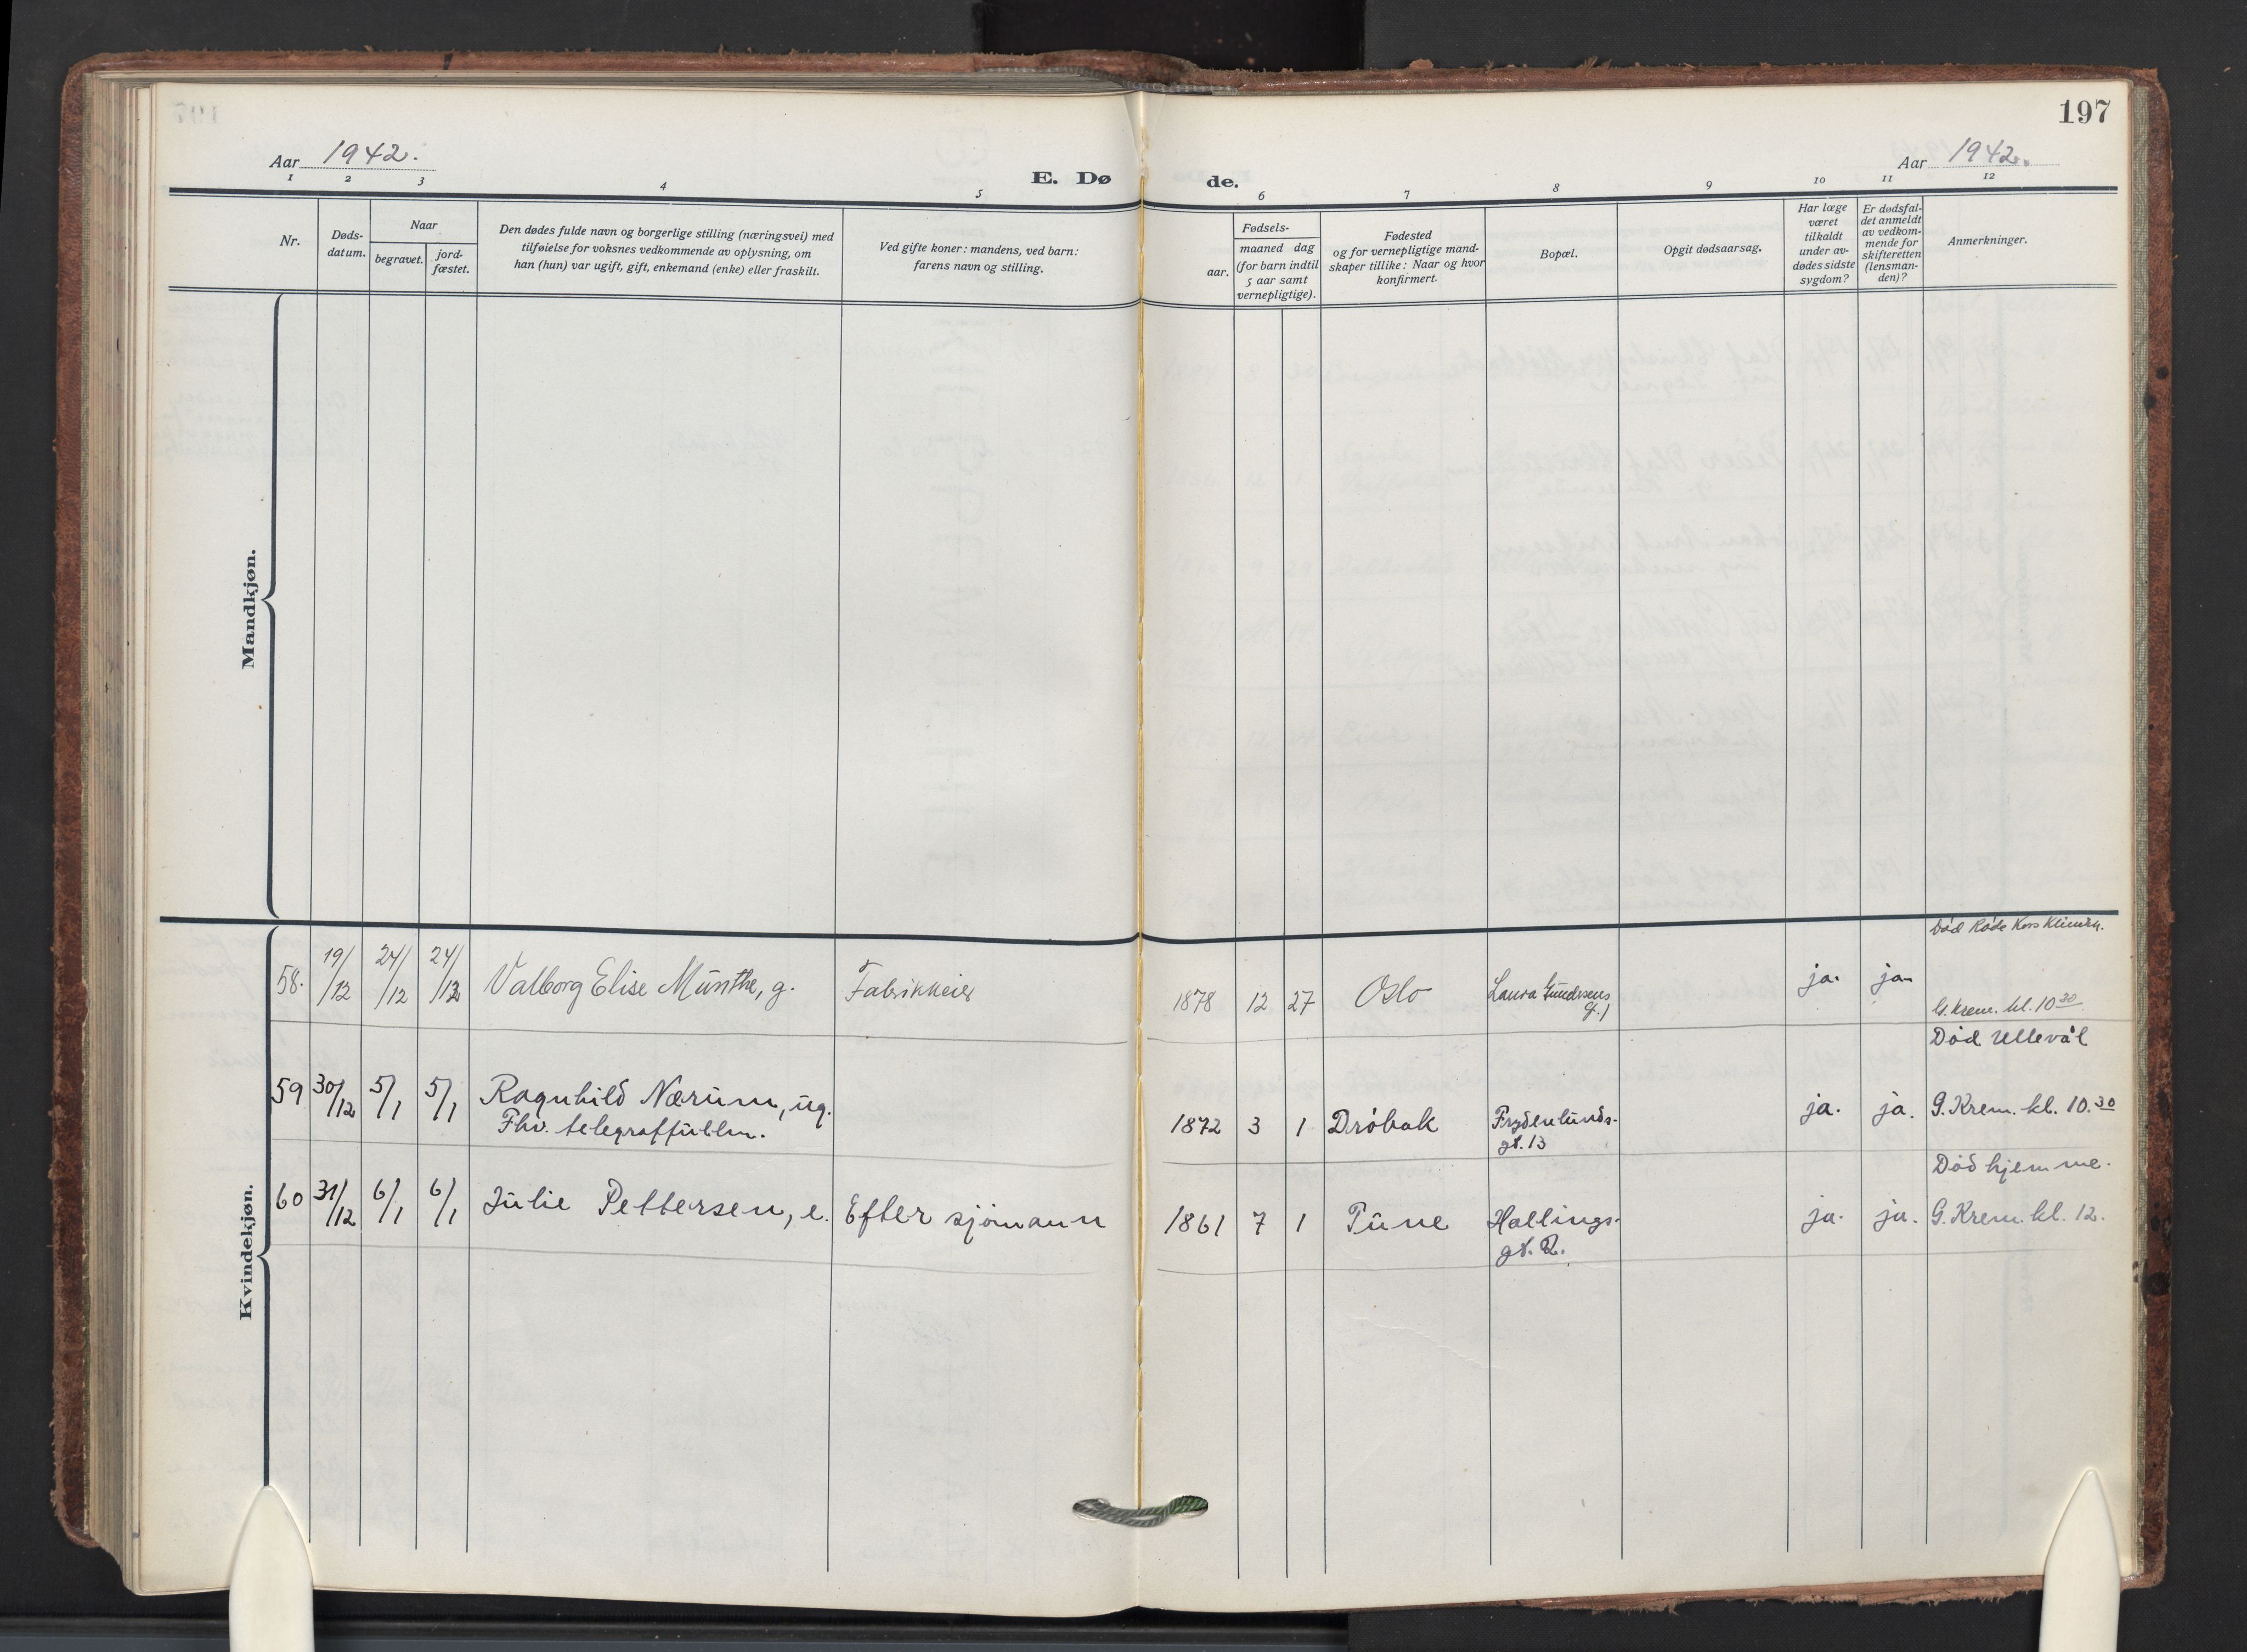 197
Aar 1942.
Aar 1942.
E. Dø
de.
1 2 3 4 5 6 7 8 9 10 11 12
Nr.
Døds-
datum.
Naar
begravet.
jord-
fæstet.
Den dødes fulde navn og borgerlige stilling (næringsvei) med
tilføielse for voksnes vedkommende av oplysning, om
han (hun) var ugift, gift, enkemand (enke) eller fraskilt.
Ved gifte koner: mandens, ved barn:
farens navn og stilling.
Fødsels-
aar.
maaned dag
(for barn indtil
5 aar samt
vernepligtige).
Fødested
og for vernepligtige mand-
skaper tillike: Naar og hvor
konfirmert.
Bopæl.
Opgit dødsaarsag.
Har læge
været
tilkaldt
under av-
dødes sidste
sygdom?
Er dødsfal-
det anmeldt
av vedkom-
mende for
skifteretten
(lensman-
den)?
Anmerkninger.
Mandkjøn.
Kvindekjøn.
Död Röde Kors Klinikk.
58. 19/12 24/12 24/12 Valborg Elise Munthe, g. Fabrikkeier 1878 12 27 Oslo Laura Gundersens
g. 1 ja. ja
G. Krem. kl. 10 30
Död Ullevål
59 30/12 5/1 5/1 Ragnhild Nærum, ug. 1872 3 1 Dröbak Frydenlunds-
gt. 13 ja. ja. G. Krem. kl. 10.30
Fhv. telegraffullm.
Död hjemme.
60 31/12 6/1 6/1 Julie Pettersen, e. Efter sjömann 1861 7 1 Tune Hallings-
gt. 2. ja. ja. G. Krem. kl. 12.